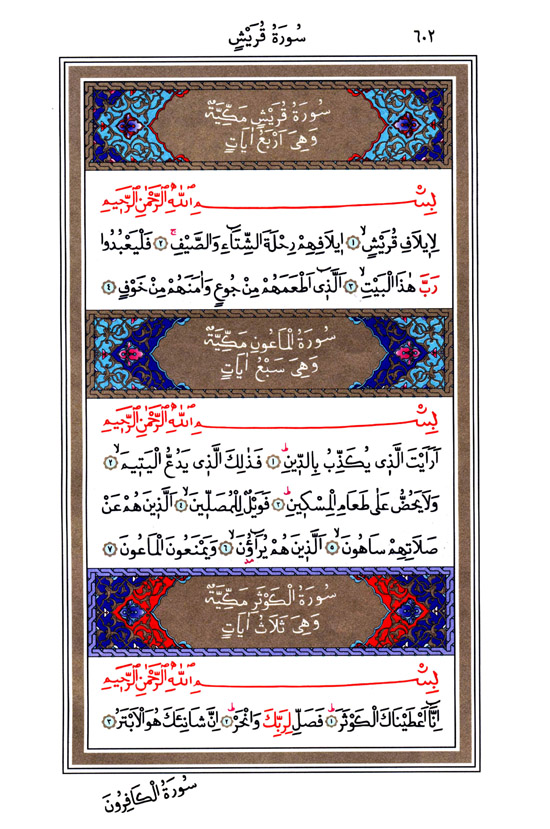 ٦٠٢ سُورَةُ قُرَيْشٍ
سُورَةُ قُرَيْشٍ مَكِّيَّةٌ
وَهِىَ اَرْبَعُ اٰيَاتٍ
بِسْــــــــمِ اللهِ الرَّحْمٰنِ الرَّحِيمِ
لِاٖيلَافِ قُرَيْشٍۙ ﴿١﴾ اٖيلَافِهِمْ رِحْلَةَ الشِّتَٓاءِ وَالصَّيْفِۚ ﴿٢﴾ فَلْيَعْبُدُوا
رَبَّ هٰذَا الْبَيْتِۙ ﴿٣﴾ اَلَّذٖٓى اَطْعَمَهُمْ مِنْ جُوعٍ وَاٰمَنَهُمْ مِنْ خَوْفٍ ﴿٤﴾
سُورَةُ الْمَاعُونِ مَكِّيَّةٌ
وَهِىَ سَبْعُ اٰيَاتٍ
بِسْــــــــمِ اللهِ الرَّحْمٰنِ الرَّحِيمِ
اَرَاَيْتَ الَّذٖى يُكَذِّبُ بِالدّٖينِؕ ﴿١﴾ فَذٰلِكَ الَّذٖى يَدُعُّ الْيَتٖيمَۙ ﴿٢﴾
وَلَا يَحُضُّ عَلٰى طَعَامِ الْمِسْكٖينِؕ ﴿٣﴾ فَوَيْلٌ لِلْمُصَلّٖينَۙ ﴿٤﴾ اَلَّذٖينَ هُمْ عَنْ
صَلَاتِهِمْ سَاهُونَۙ ﴿٥﴾ اَلَّذٖينَ هُمْ يُرَٓاؤُ۫نَۙ ﴿٦﴾ وَيَمْنَعُونَ الْمَاعُونَ ﴿٧﴾
سُورَةُ الْكَوْثَرِ مَكِّيَّةٌ
وَهِىَ ثَلَاثُ اٰيَاتٍ
بِسْــــــــمِ اللهِ الرَّحْمٰنِ الرَّحِيمِ
اِنَّٓا اَعْطَيْنَاكَ الْكَوْثَرَؕ ﴿١﴾ فَصَلِّ لِرَبِّكَ وَانْحَرْؕ ﴿٢﴾ اِنَّ شَانِئَكَ هُوَ الْاَبْتَرُ ﴿٣﴾
سُورَةُ الْكَافِرُونَ